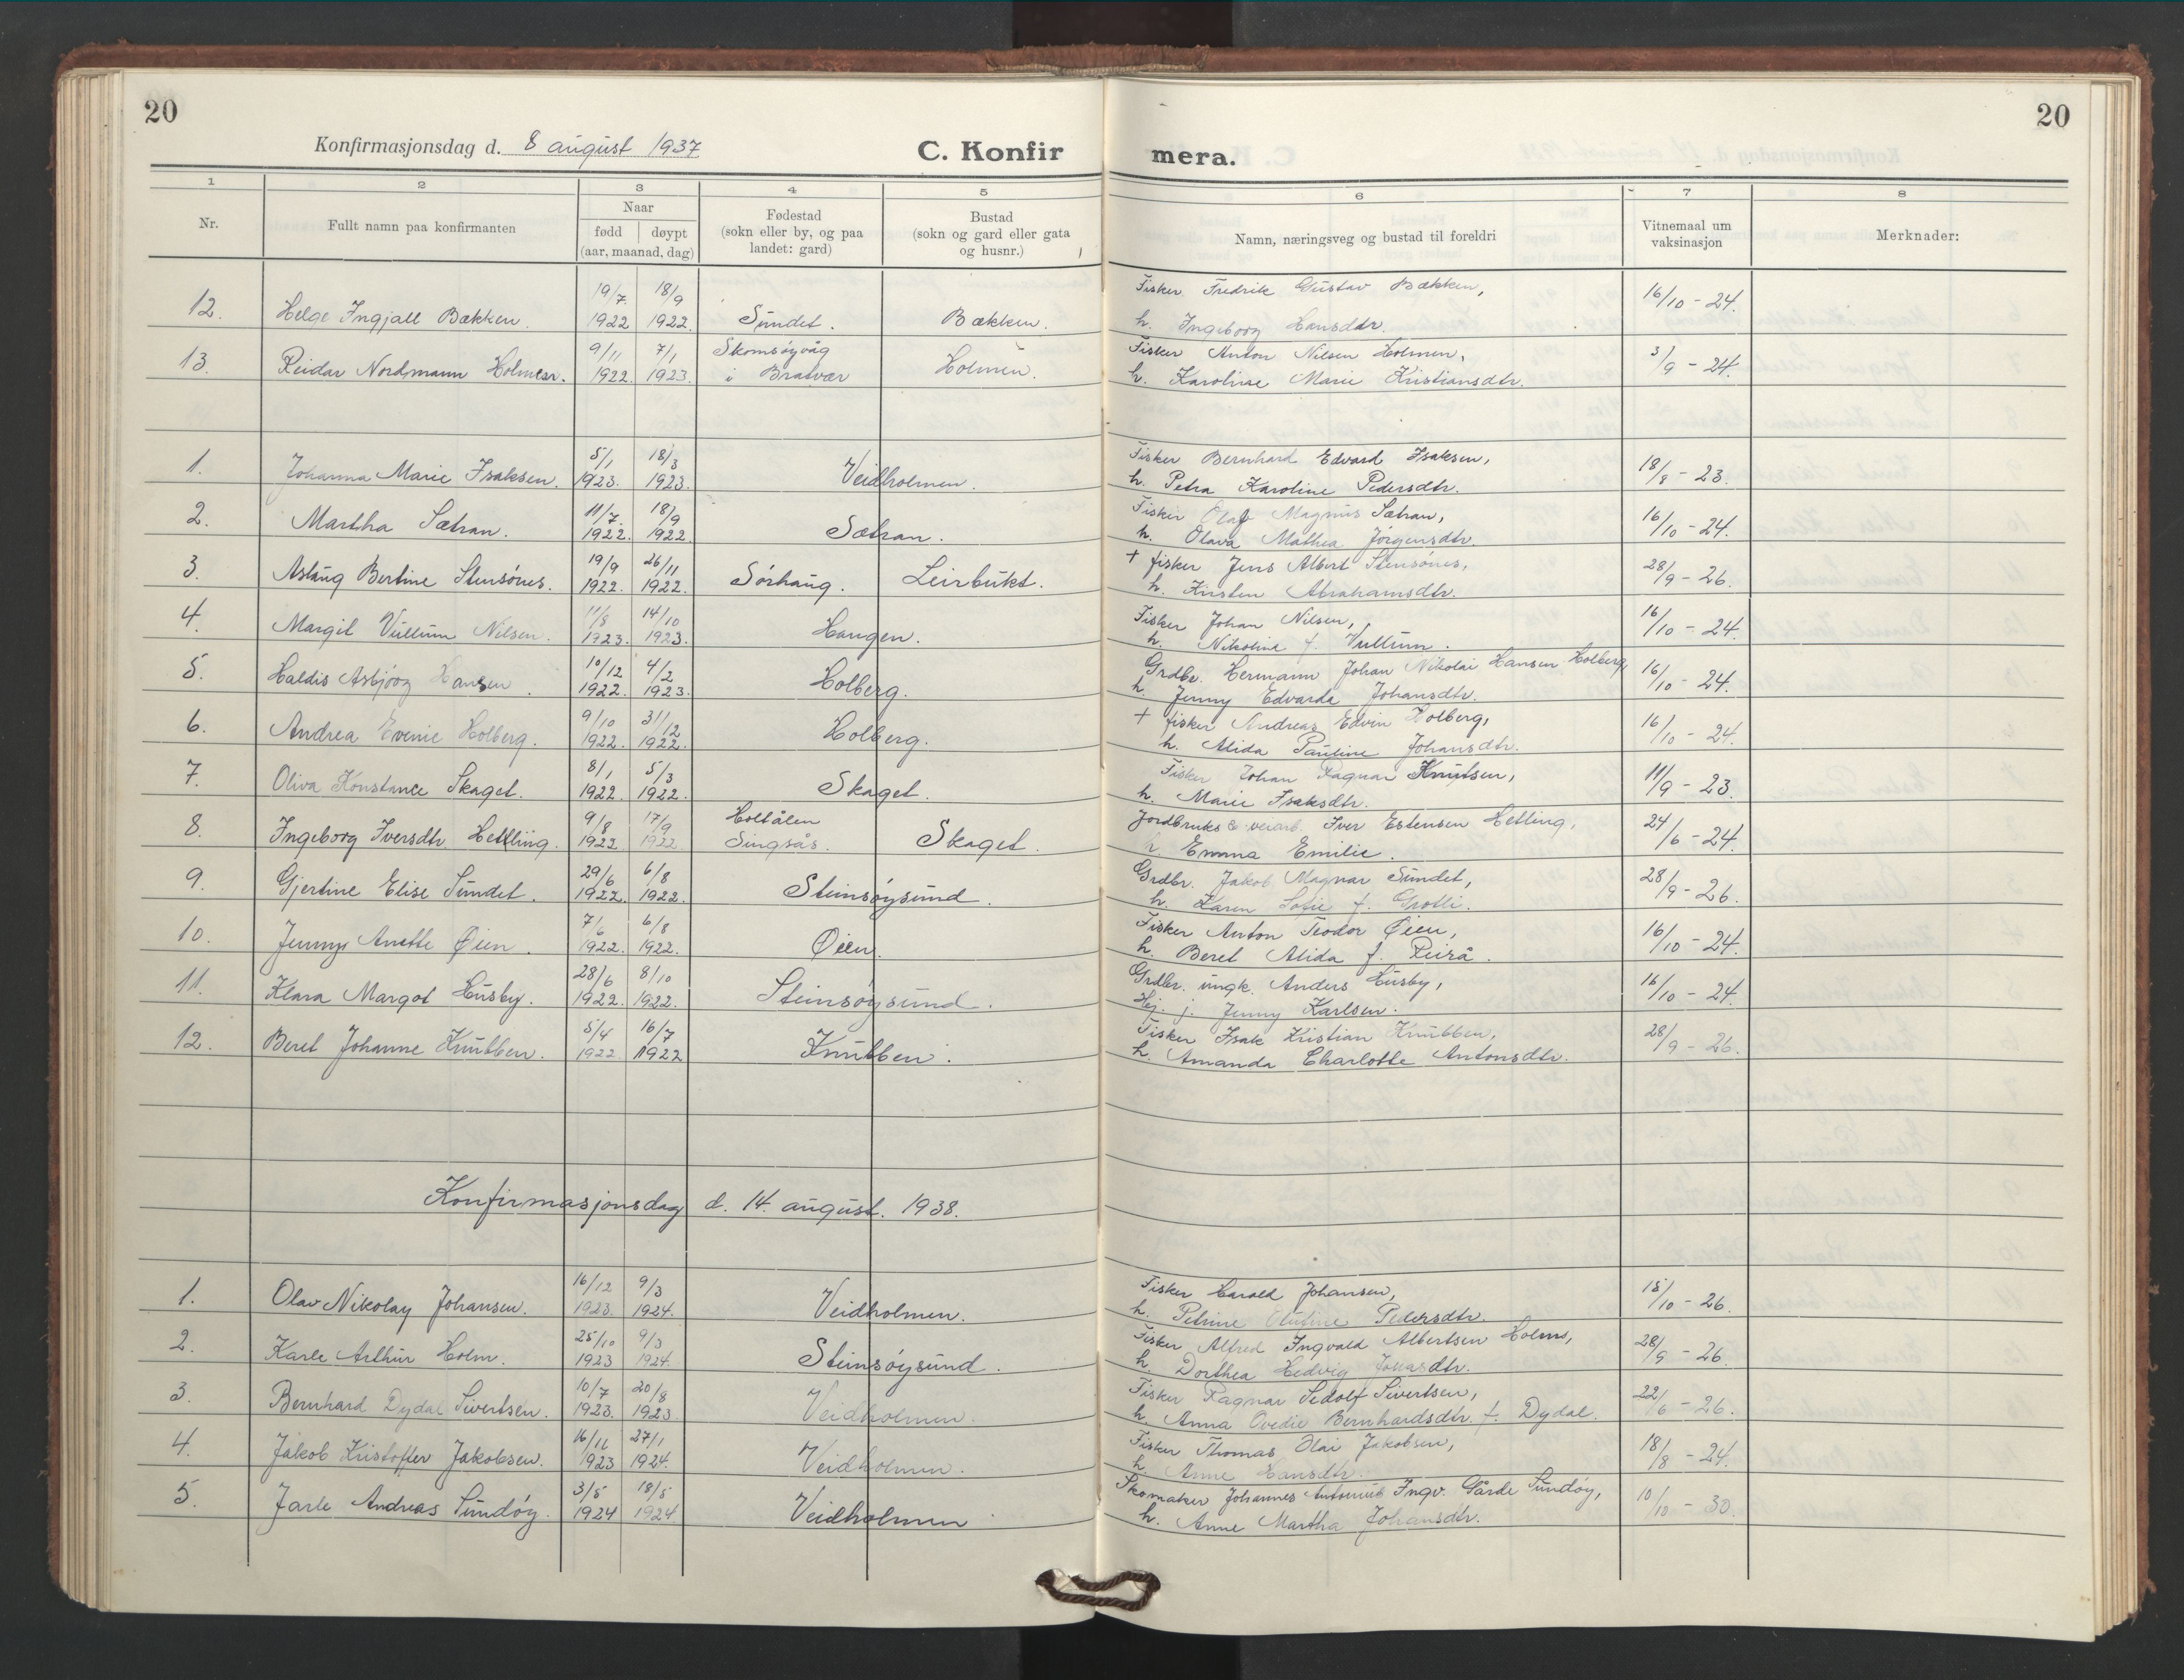 20
20
Konfirmasjonsdag d. 8 august 1937
C. Konfir mera.
1 2 3 4 5 6 7 8
Nr.
Fullt namn paa konfirmanten
Naar
fødd døypt
(aar, maanad, dag)
Fødestad
(sokn eller by, og paa
landet: gard)
Bustad
(sokn og gard eller gata
og husnr.)
Namn, næringsveg og bustad til foreldri
Vitnemaal um
vaksinasjon
Merknader:
19/7. 18/9 Fisker Fredrik Gustav Bækken, 16/10 - 24.
12. Helge Ingjall Bækken. 1922 1922. Sundet. Bækken. h. Ingeborg Hansdtr.
9/11 7/1 Skomsøyvåg Fisker Anton Nilsen Holmen, 3/9 - 24.
13. Reidar Nordmann Holmen. 1922. 1923. i Bratvær Holmen. h. Karoline Marie Kristiansdtr.
5/1 18/3 Fisker Bernhard Edvard Isaksen, 18/8 - 23.
1. Johanna Marie Isaksen. 1923. 1923. Veidholmen. h. Petra Karoline Pedersdtr.
11/7. 18/9 Fisker Olaf Magnus Sætran, 16/10 - 24.
2. Martha Sætran. 1922. 1922. Sætran. h. Olava Mathea Jørgensdtr.
19/9 26/11 + fisker Jens Albert Stensønes, 28/9 - 26.
3. Aslaug Bertine Stensønes. 1922. 1922. Sørhaug. Leirbukt. h. Kirsten Abrahamsdtr.
11/8 14/10 Fisker Johan Nilsen, 16/10 - 24.
4. Margit Vullum Nilsen. 1923. 1923. Haugen. h. Nikoline f. Vullum.
10/12 4/2 Grdbr. Hermann Johan Nikolai Hansen Holberg, 16/10 - 24.
5. Haldis Asbjørg Hansen. 1922. 1923. Holberg. h. Jenny Edvarda Johansdtr.
9/10 31/12 + fisker Andreas Edvin Holberg, 16/10 - 24.
6. Andrea Evenie Holberg. 1922. 1922. Holberg. h. Alida Pauline Johansdtr.
8/1 5/3 Fisker Johan Ragnar Knutsen, 11/9 - 23.
7. Oliva Konstance Skaget. 1922. 1922. Skaget. h. Marie Isaksdtr.
9/8 17/9 Holtålen Jordbruks & verarb. Iver Estensen Hetling, 24/6 - 24.
8. Ingeborg Iversdtr. Hetling. 1922. 1922 Singsås. Skaget. h Emma Emilie.
29/6 6/8 Grdbr. Jakob Magnar Sundet, 28/9 - 26.
9. Gjertine Elise Sundet. 1922. 1922. Steinsøysund. h. Karen Sofie f. Grotli.
7/6 6/8 Fisker Anton Teodor Øien, 16/10 - 24.
10. Jennys Anette Øien. 1922. 1922. Øien. h. Beret Alida f. Reirå.
28/6 8/10 Grdbr. ungk. Anders Husby, 16/10 - 24.
11. Klara Margot Husby. 1922. 1922. Steinsøysund. Hej. j. Jenny Karlsen.
5/4 16/7 Fisker Isak Kristian Knubben, 28/9 - 26.
12. Beret Johanne Knubben. 1922. 1922 Knubben. h. Amanda Charlotte Antonsdtr.
Konfirmasjonsdag d. 14. august. 1938.
16/12 9/3 Fisker Harald Johansen, 15/10 - 26.
1. Olav Nikolay Johansen. 1923. 1924. Veidholmen. h. Petrine Olufine Pedersdtr.
25/10 9/3 Fisker Alfred Ingvald Albertsen Holms, 28/9 - 26.
2. Karle Arthur Holm. 1923 1924. Steinsøysund. h. Dorthea Hedvig Jonasdtr.
10/7 20/8 Fisker Ragnar Sedolf Sivertsen, 22/6 - 26.
3. Bernhard Dydal Sivertsen. 1923. 1923. Veidholmen. h. Anna Ovedie Bernhardsdtr. f. Dydal.
16/11 27/1 Fisker Thomas Olai Jakobsen, 18/8 - 24.
4. Jakob Kristoffer Jakobsen. 1923 1924. Veidholmen. h. Anne Hansdtr.
3/5 18/5 Skomaker Johannes Antonius Ingv. Garde Sundøy, 10/10 - 30.
5. Jarle Andreas Sundøy. 1924 1924 Veidholmen h. Anne Martha Johansdtr.